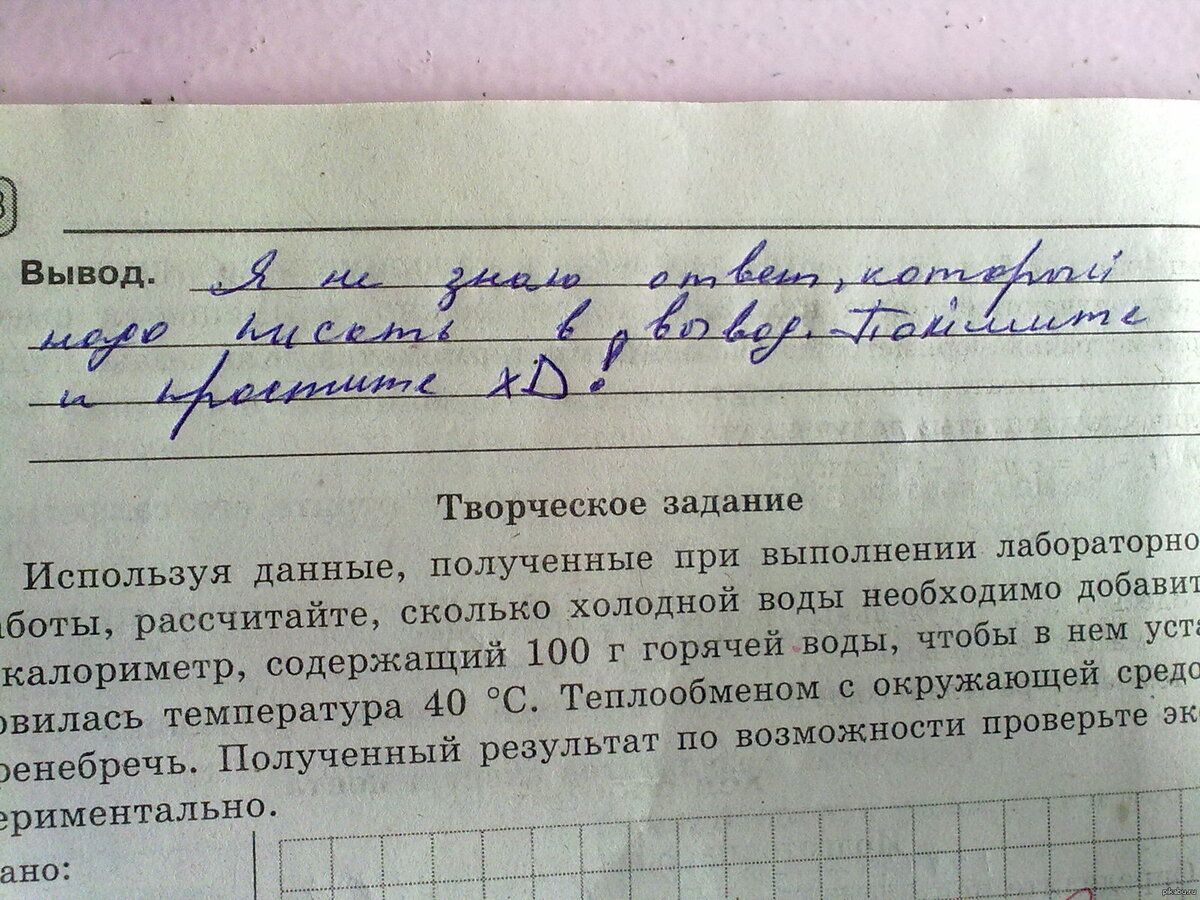 Вывод. Я не знаю ответ, который
надо писать в вывод. Поймите
и простите xD!
Творческое задание
Используя данные, полученные при выполнении лабораторно
аботы, рассчитайте, сколько холодной воды необходимо добавит
калориметр, содержащий 100 г горячей воды, чтобы в нем уста
овилась температура 40 °С. Теплообменом с окружающей средо
ренебречь. Полученный результат по возможности проверьте экс
ериментально.
ано:
pikabu.ru